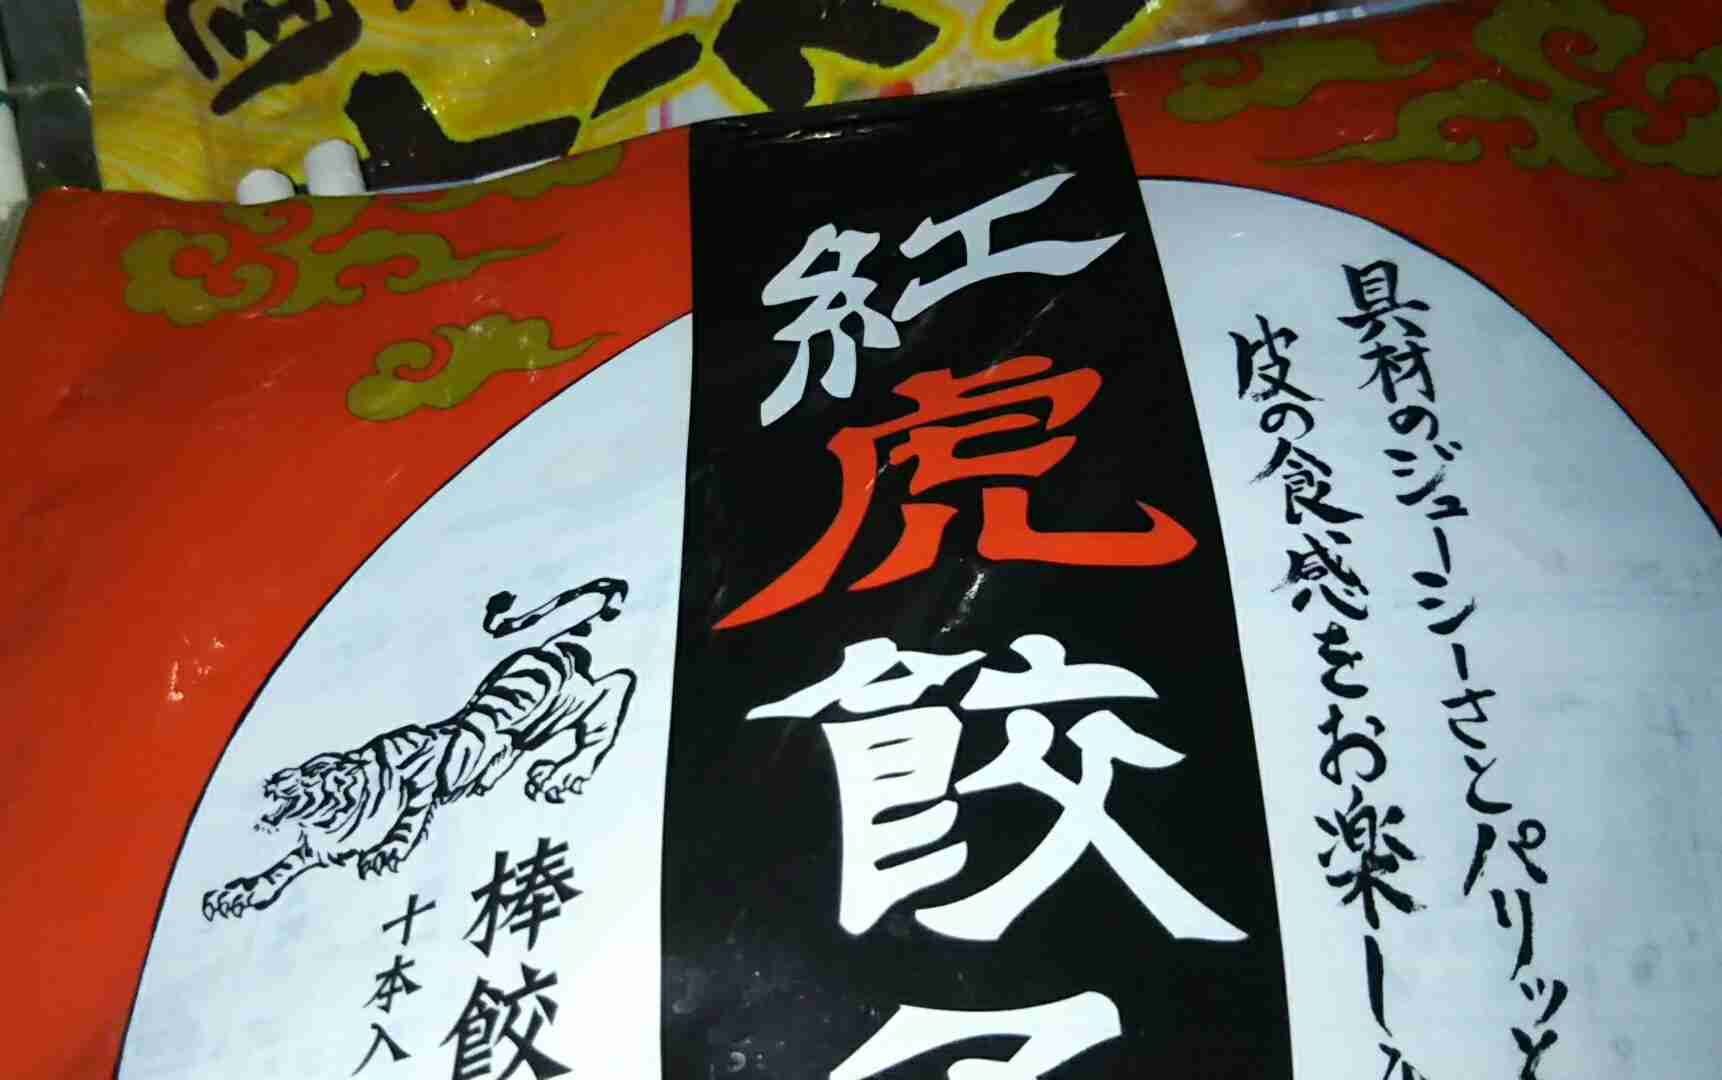 紅虎餃子
具材のジューシーさとパリッと
皮の食感をお楽し
棒餃
十本入